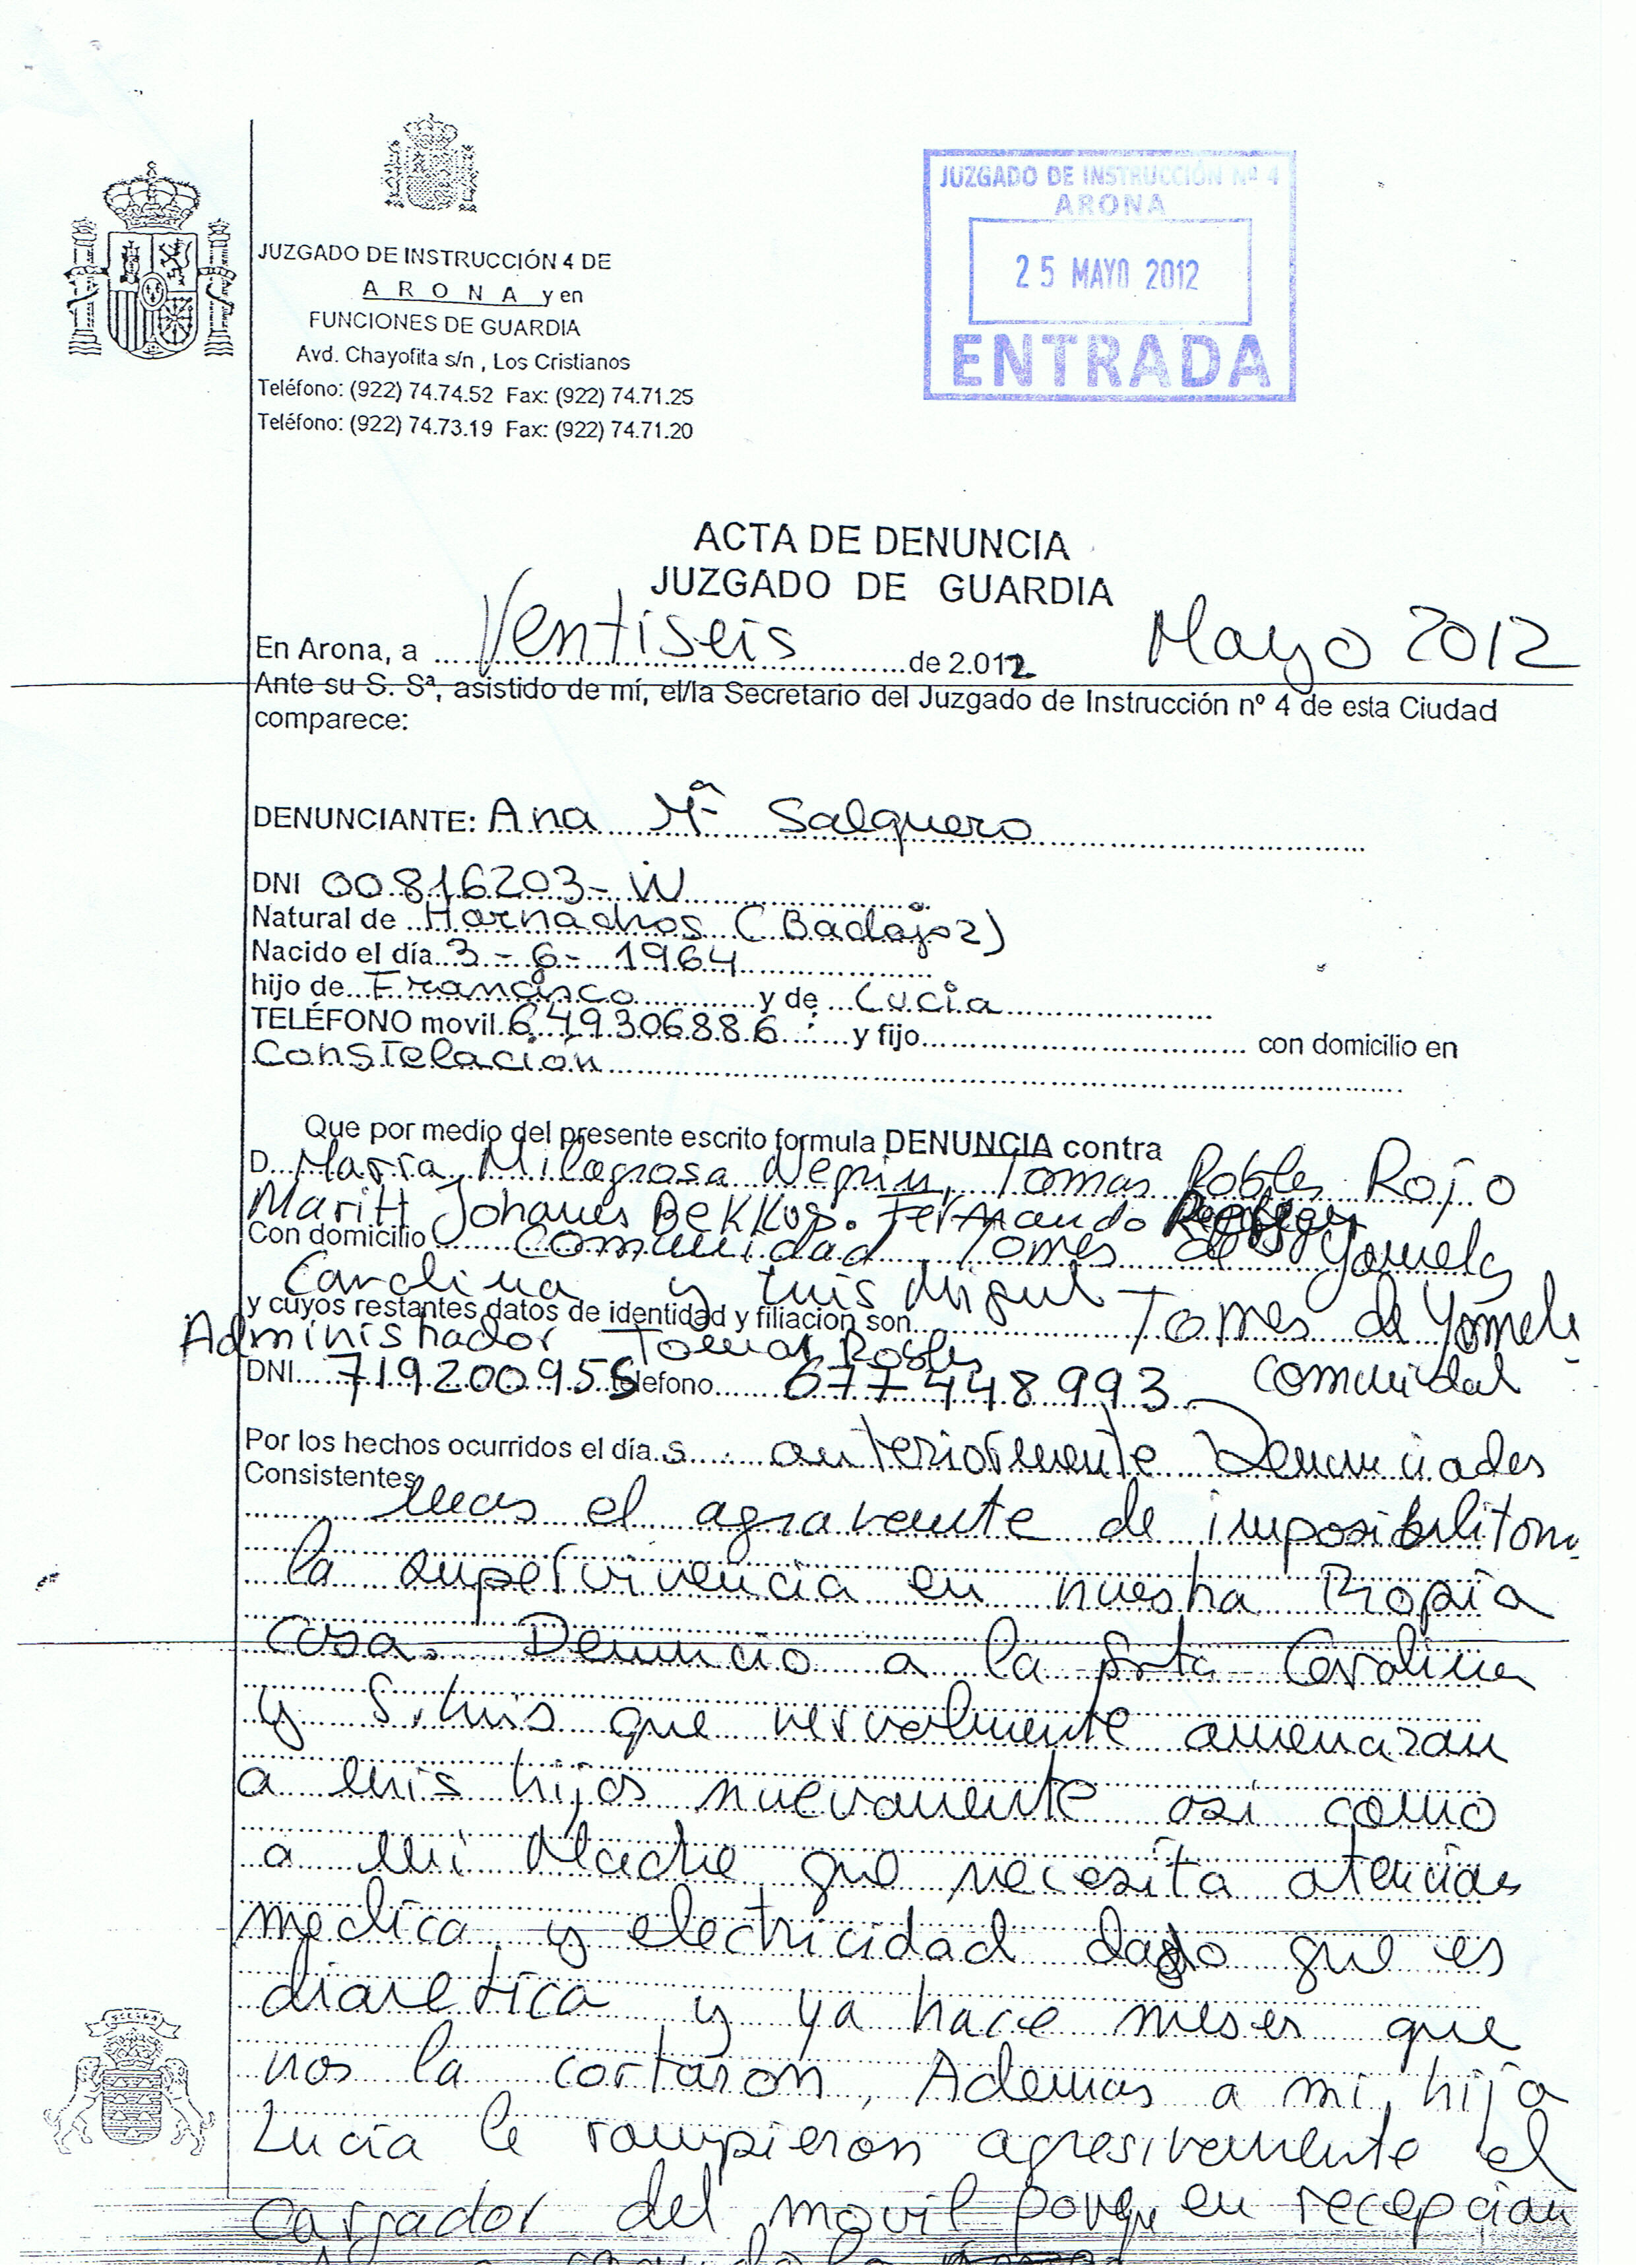 JUZGADO DE INSTRUCCIÓN Nº 4
ARONA
25 MAYO 2012
ENTRADA
JUZGADO DE INSTRUCCIÓN 4 DE
A R O N A y en
FUNCIONES DE GUARDIA
Avd. Chayofita s/n , Los Cristianos
Teléfono: (922) 74.74.52 Fax: (922) 74.71.25
Teléfono: (922) 74.73.19 Fax: (922) 74.71.20
ACTA DE DENUNCIA
JUZGADO DE GUARDIA
En Arona, a Ventiseis de 2.012 Mayo 2012
Ante su S. Sª, asistido de mí, el/la Secretario del Juzgado de Instrucción nº 4 de esta Ciudad
comparece:
DENUNCIANTE: Ana Mª Salguero
DNI 00816203-W
Natural de Hornachos (Badajoz)
Nacido el día 3-6-1964
hijo de Francisco y de Lucia
TELÉFONO movil 649306886 y fijo con domicilio en
Constelación
Que por medio del presente escrito formula DENUNCIA contra
D. María Milagrosa Tomas Robles Rojo
Maritt Johanes Bekkus. Fernando
Con domicilio Comunidad Torres de Yomely
Carolina y Luis Miguel Torres de Yomely
y cuyos restantes datos de identidad y filiacion son
Administrador Tomas Robles
DNI 719200955 telefono 677448993 Comunidad
Por los hechos ocurridos el día s anteriormente Denunciados
Consistentes
mas el agravante de
la supervivencia en nuestra Propia
casa. Denuncio a la Srta Carolina
y S. Luis que vervalmente amenazan
a mis hijos nuevamente asi como
a mi Madre que necesita atencion
medica y electricidad dado que es
diavetica y ya hace meses que
nos la cortaron, Ademas a mi hija
Lucía le rompieron agresivamente el
cargador del movil porque en recepcion